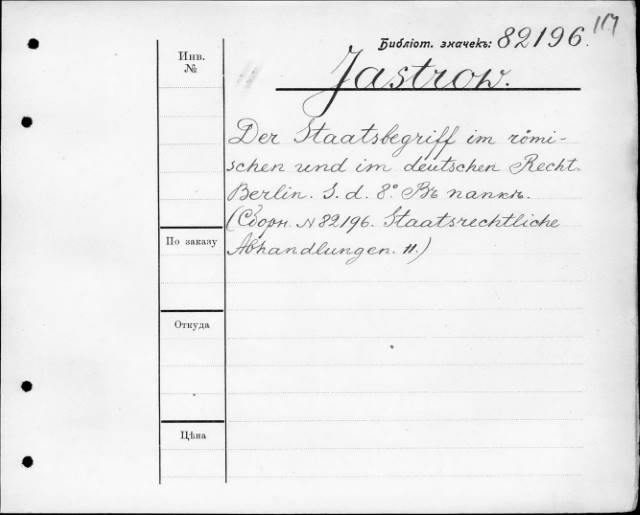 117
Библіот. значекъ: 82196.
Инв.
№
Jastrow.
Der Staatsbegriff im römi-
schen und im deutschen Recht.
Berlin. S. d. 8° Въ папкѣ.
(Сборн. N 82196. Staatsrechtliche
Abhandlungen. 11.)
По заказу
Откуда
Цѣна